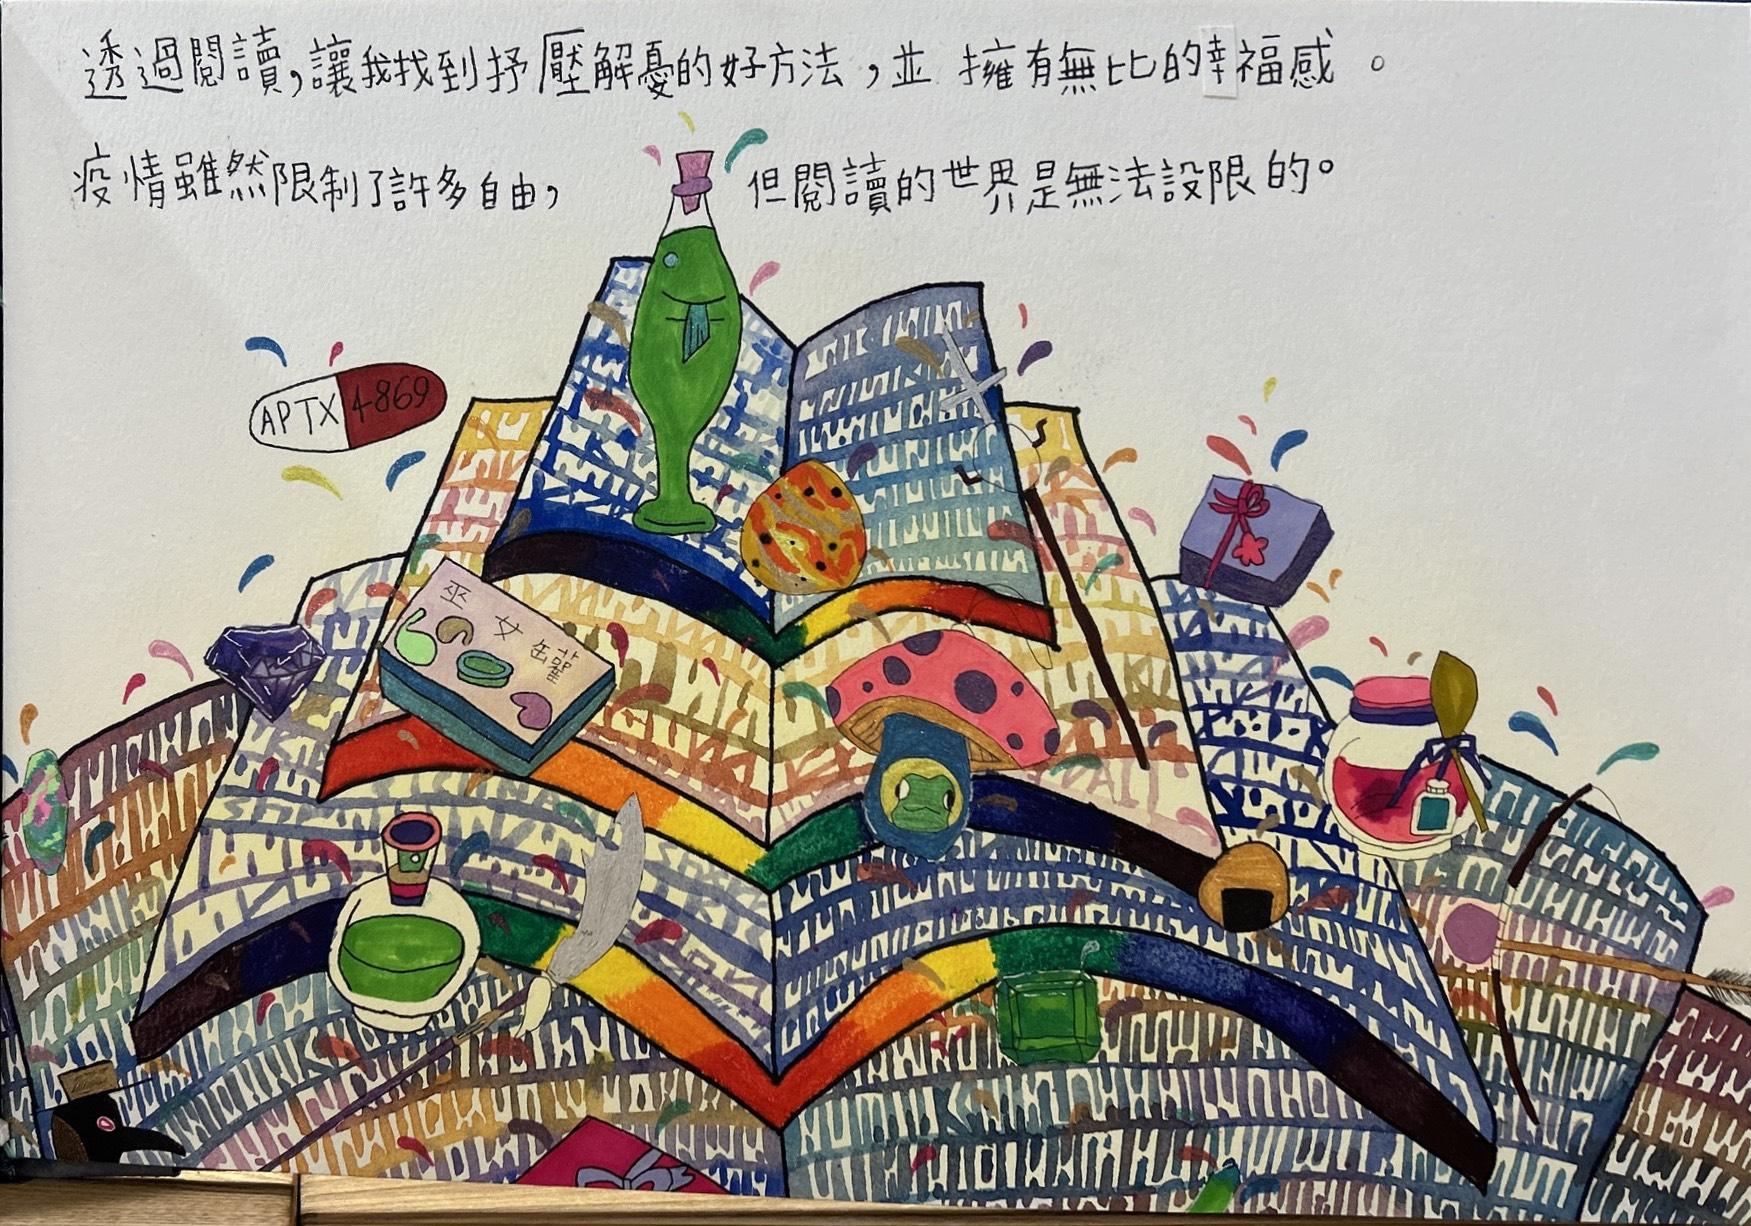 透過閱讀，讓我找到抒壓解憂的好方法，並擁有無比的幸福感。
疫情雖然限制了許多自由，但閱讀的世界是無法設限的。
APTX4869
巫女